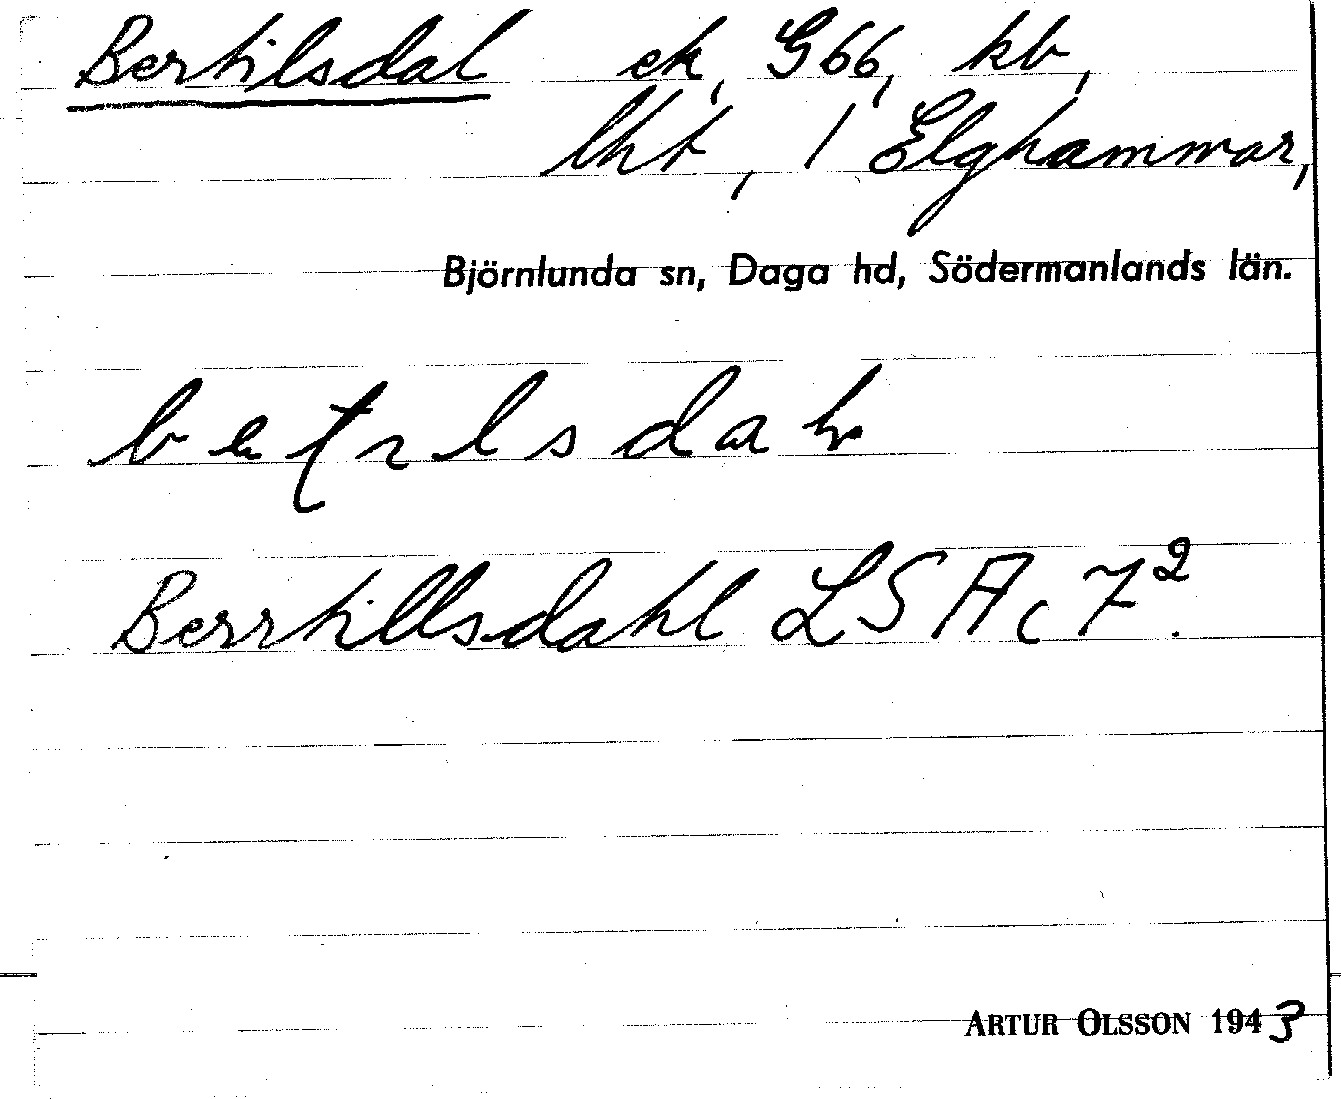 Bertilsdal ek, G66, kb,
lht, 1 Elghammar,
Björnlunda sn, Daga hd, Södermanlands län.
Berrtillsdahl LSA c 7².
ARTUR OLSSON 1943